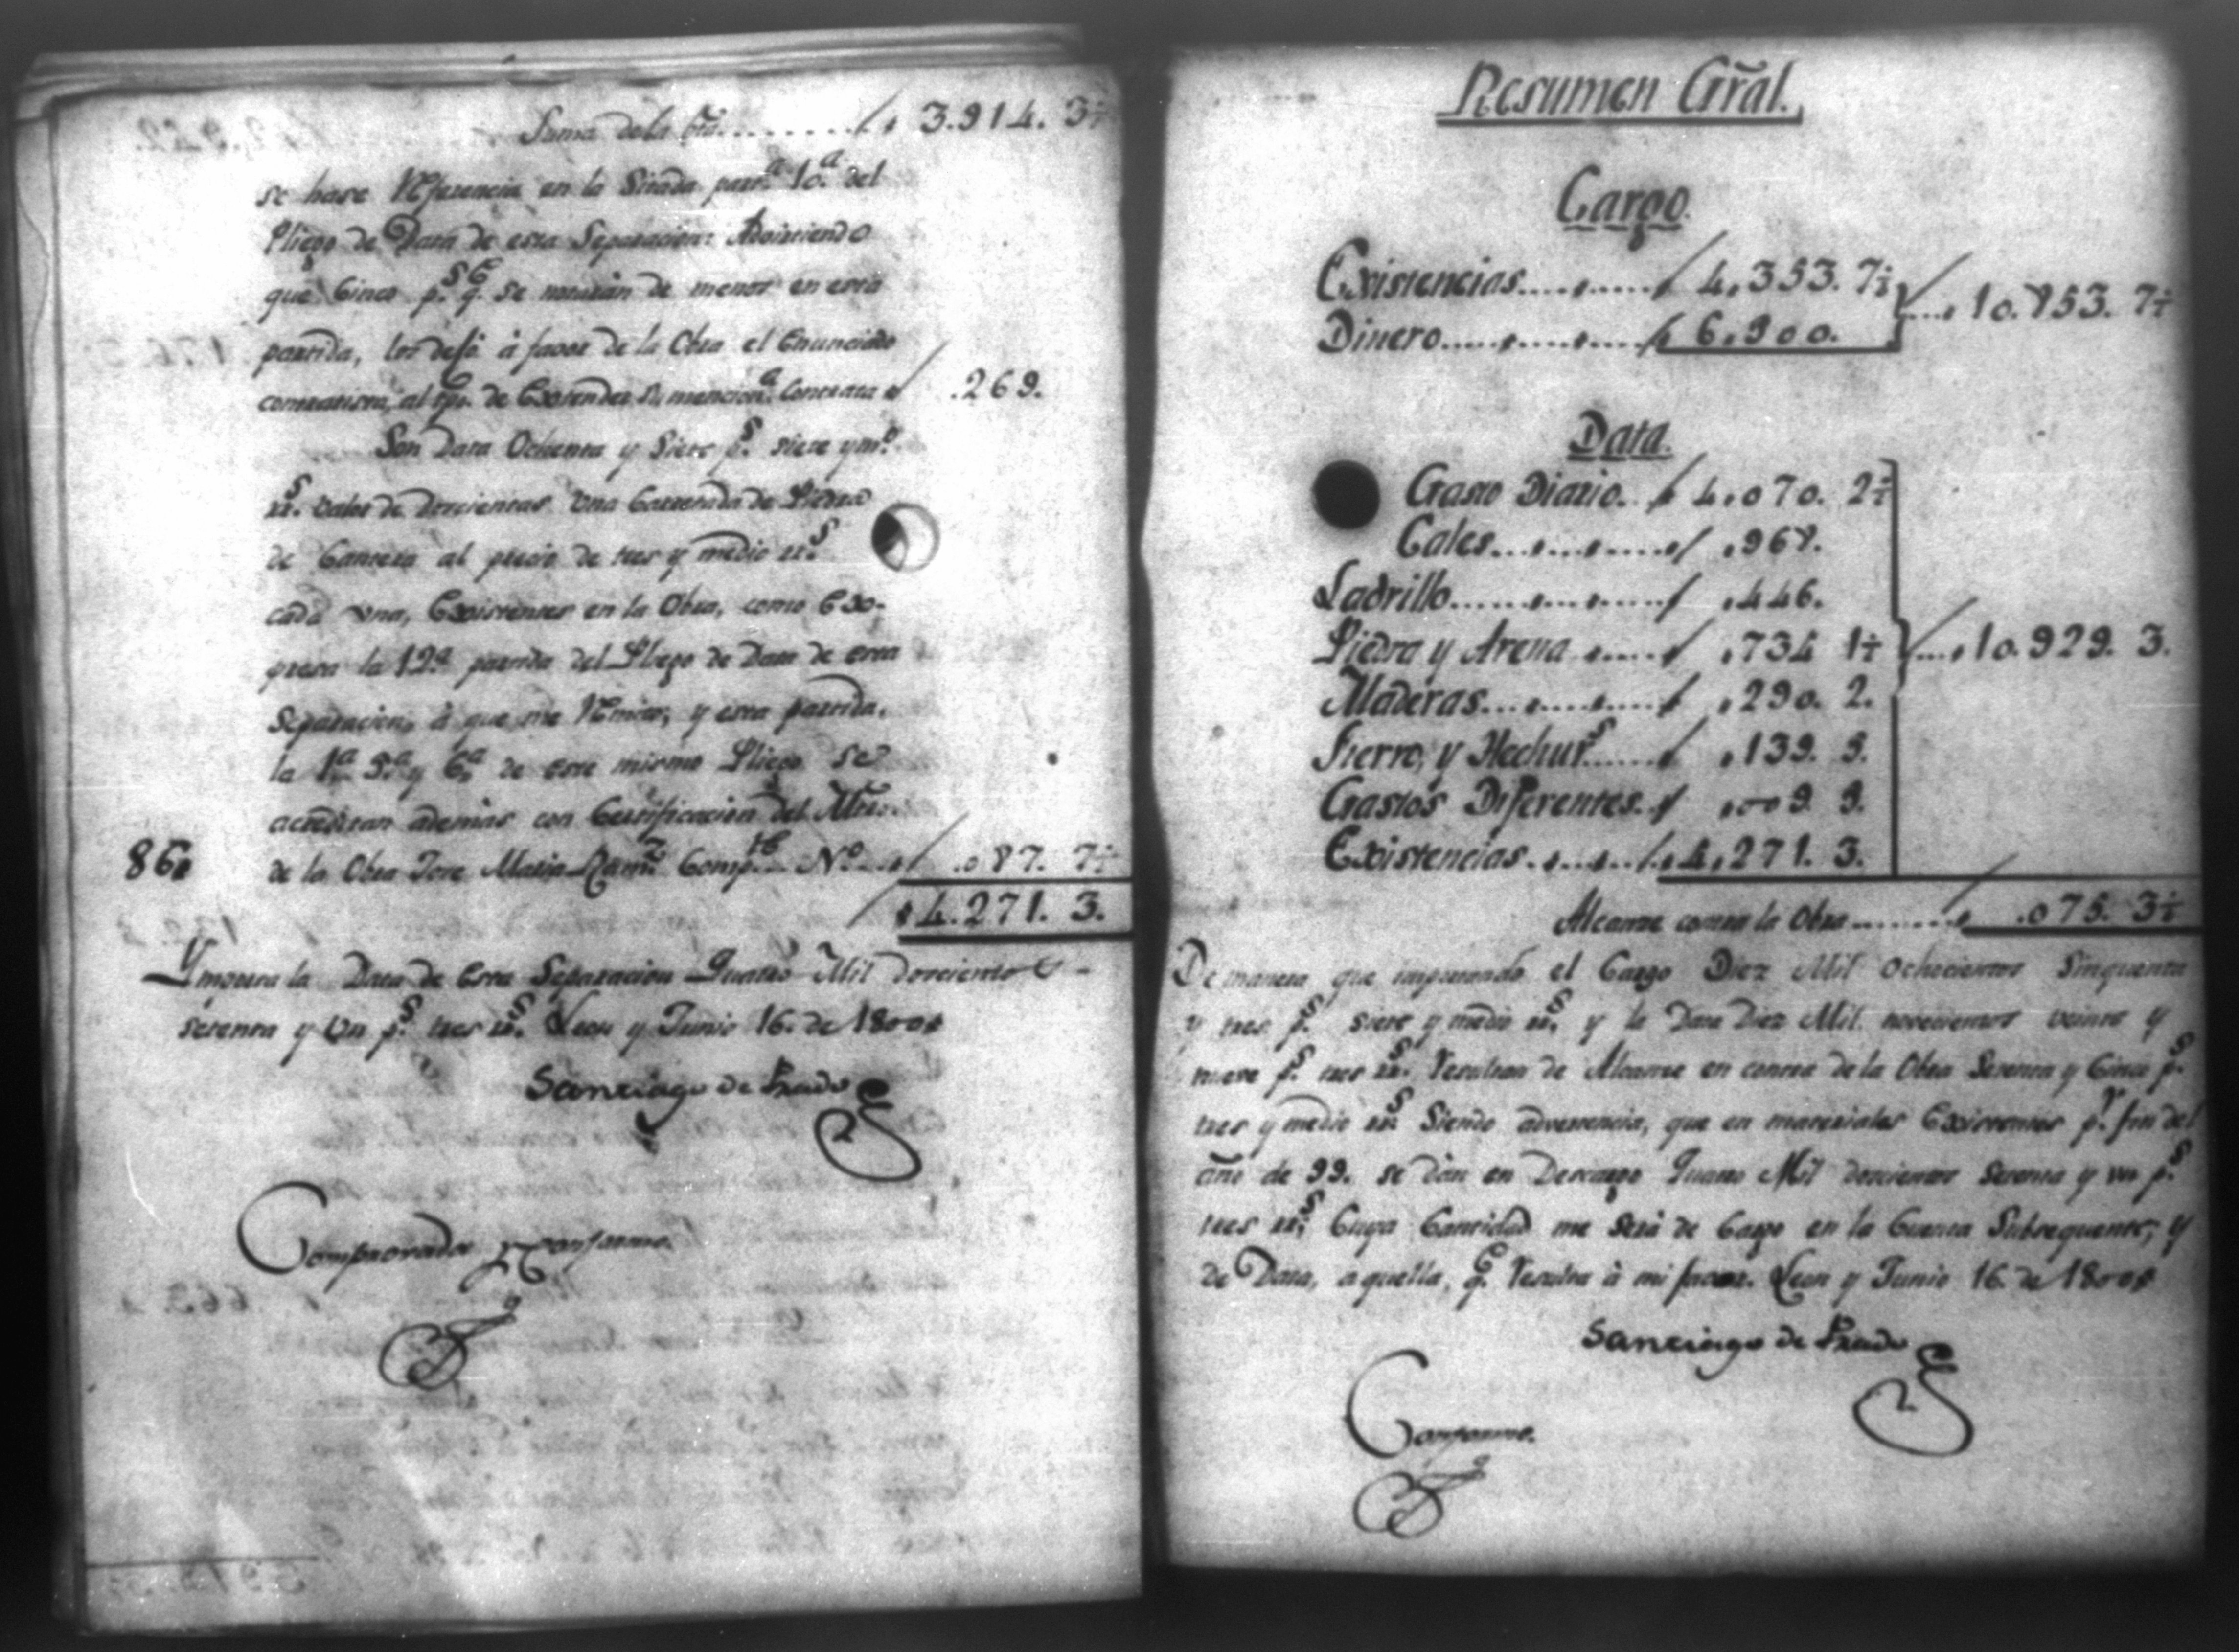 Suma de la bta......... 3.914. 3½
se hase Referencia en la Sitada part.ª 10.ª del
Pliego de Data de esta Separacion: Advirtiendo
que Cinco p.s q.e se notarán de menor en esta
partida, los dejó à favor de la Obra el Enunciado
contratista, al tpo. de Extender su mencion.ª Contrata .269.
Son Data Ochenta y Siete p.s siete y m.º
rr.s valor de doscientas una Carretada de Piedra
de Cantera al precio de tres y medio rr.s
cada una, Existentes en la Obra, como Ex-
presa la 12.ª partida del Pliego de Data de esta
Separacion, à que me Remito, y esta partida,
la 1.ª 5.ª y 6.ª de este mismo Pliego se
acreditan ademas con Certificacion del Mtro.
86. de la Obra Jose Maria Ramz. Comp.te N.º .087. 7½
4.271. 3.
Ymporta la Data de Esta Separacion Quatro Mil doscientos
setenta y un p.s tres rr.s Leon y Junio 16. de 1800
Santiago de Prado
Comprovada y Conforme.
Resumen Gral.
Cargo.
Existencias......... 4,353. 7½
10.853. 7½
Dinero......... 6,900.
Data.
Gasto Diario.. 4,070. 2½
Cales......... ,968.
Ladrillo......... ,446.
Piedra y Arena ...... ,734 1½
10.929. 3.
Maderas......... ,290. 2.
Fierro, y Hechur.s ...... ,139. 5.
Gastos Diferentes. ,009 3.
Existencias......... 4,271. 3.
Alcanse contra la Obra....... .075. 3½
De manera que importando el Cargo Diez Mil ochocientos Sinquenta
y tres p.s siete y medio rr.s y la Data Diez Mil novecientos veinte y
nueve p.s tres rr.s Resultan de Alcanse en contra de la Obra Setenta y Cinco p.s
tres y medio rr.s Siendo advertencia, que en materiales Existentes p.r fin del
año de 99. se dan en Descargo Quatro Mil doscientos Setenta y un p.s
tres rr.s Cuya Cantidad me será de Cargo en la Cuenta Subsequente; y
de Data, aquella, q.e Resulta à mi favor. Leon y Junio 16. de 1800
Santiago de Prado
Conforme.